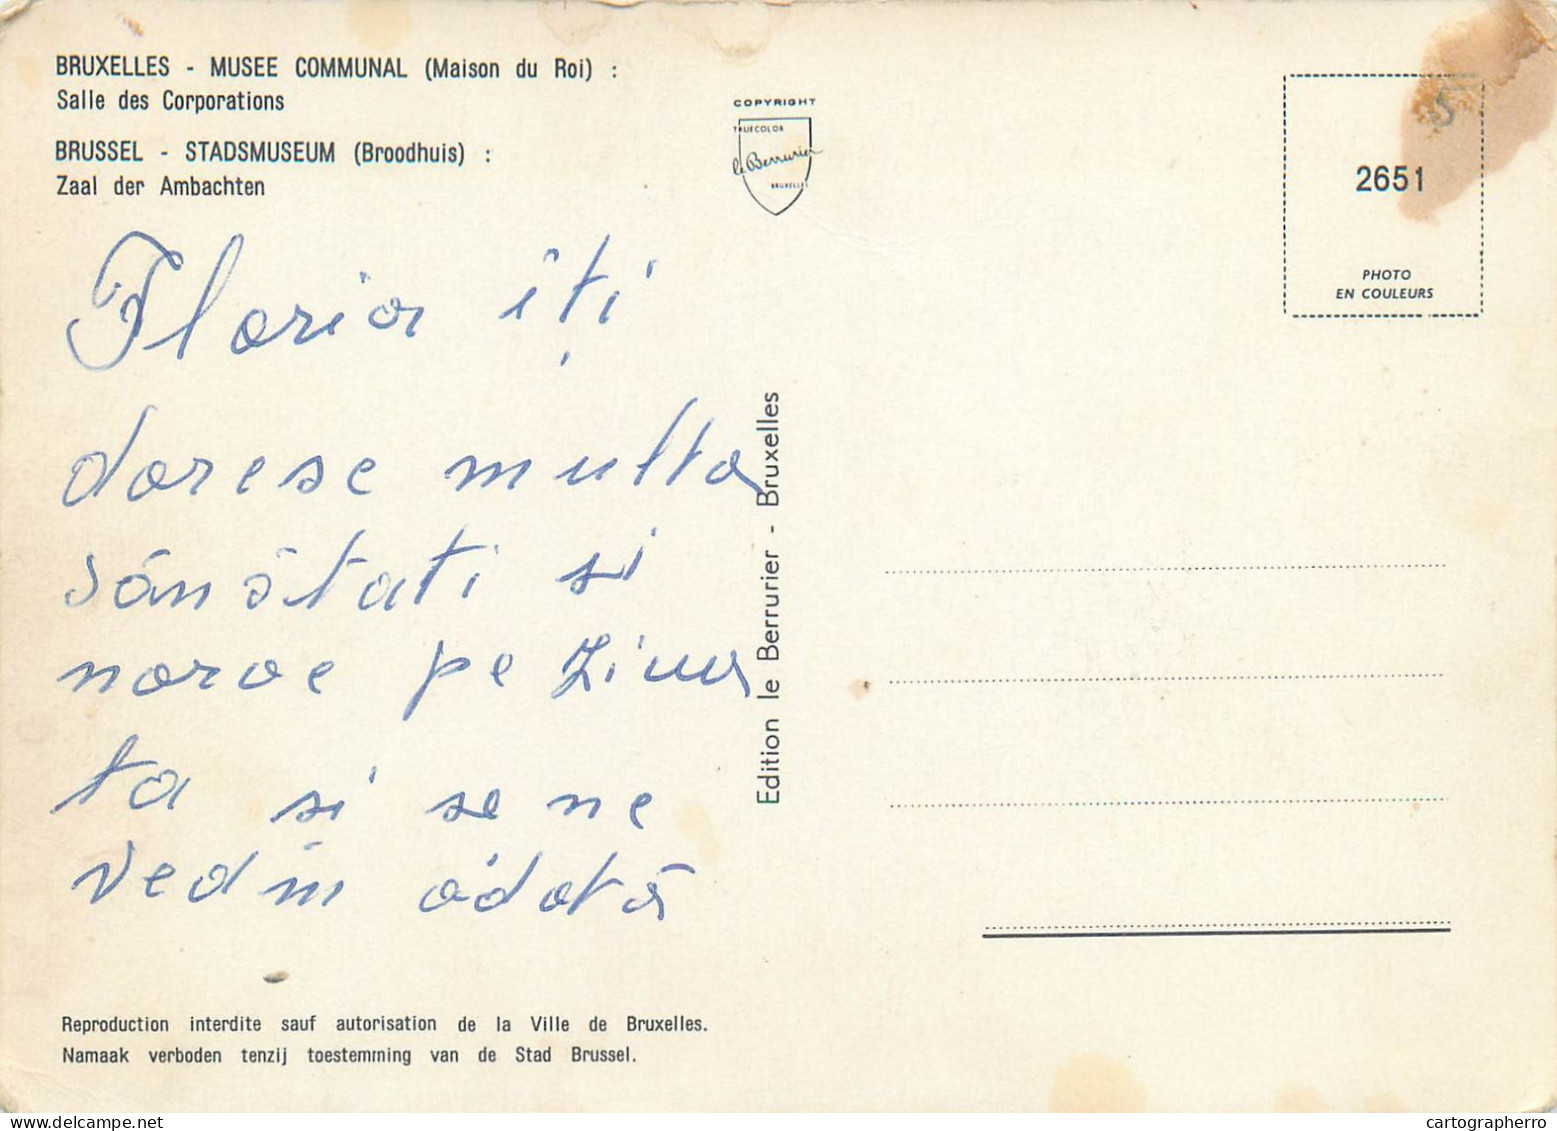 BRUXELLES - MUSEE COMMUNAL (Maison du Roi) :
Salle des Corporations
BRUSSEL - STADSMUSEUM (Broodhuis) :
Zaal der Ambachten
Floria îți
doresc multa
sănătati si
noroc pe ziua
ta si se ne
vedm ădată
Reproduction interdite sauf autorisation de la Ville de Bruxelles.
Namaak verboden tenzij toestemming van de Stad Brussel.
COPYRIGHT
TRUECOLOR
le Berrurier
BRUXELLES
Edition le Berrurier - Bruxelles
5
2651
PHOTO
EN COULEURS
cartographerro